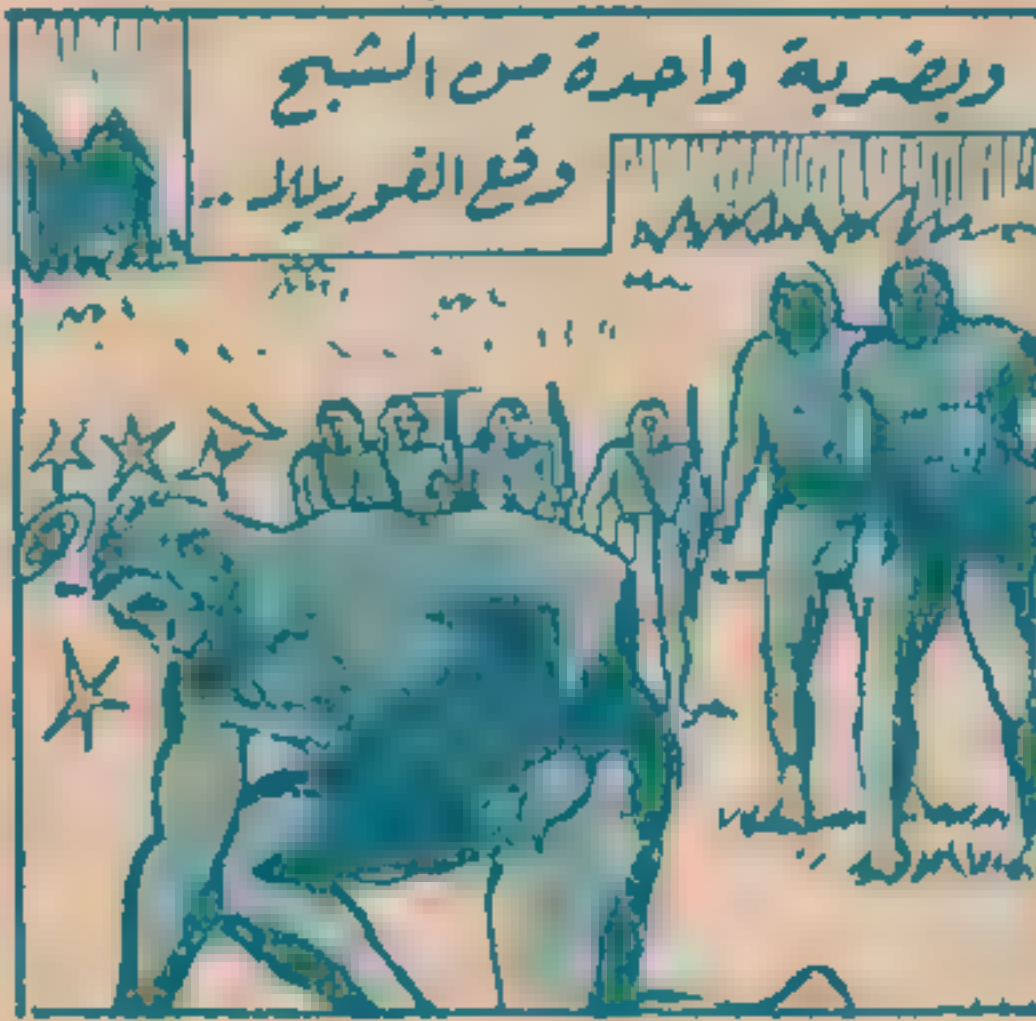 وبضربة واحدة من الشبح
وقع الغوريلا ..